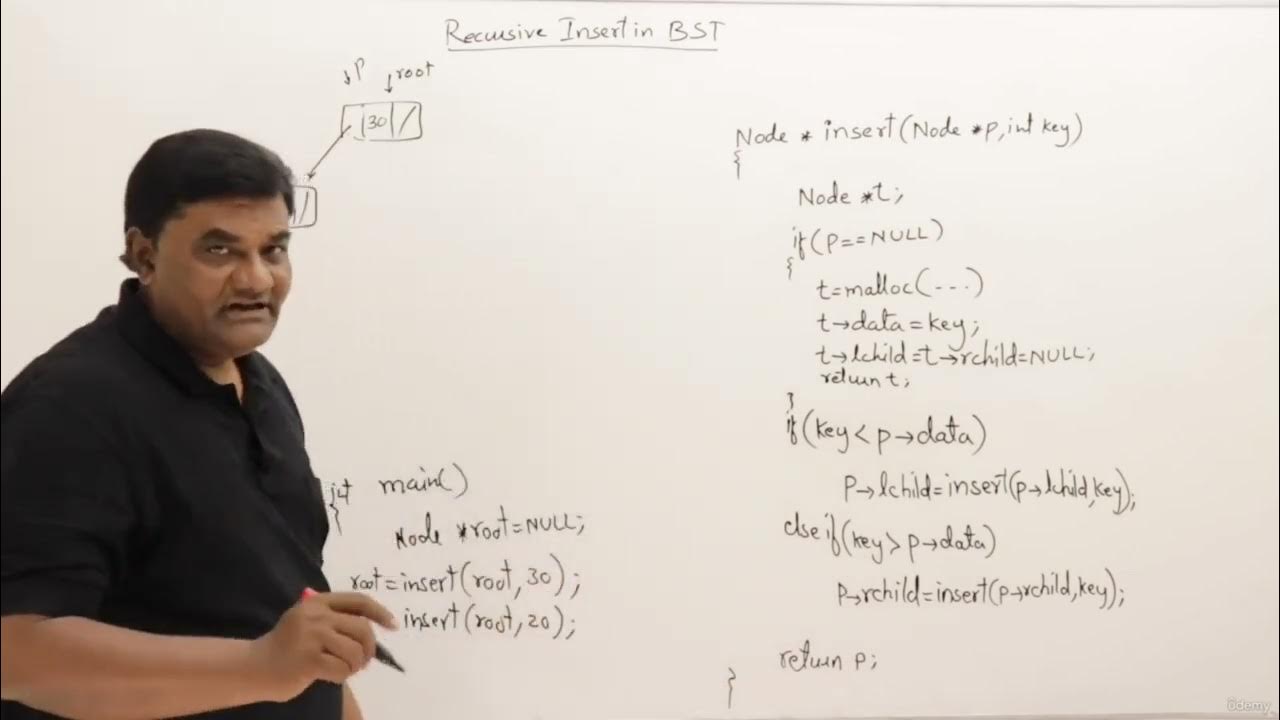 Recursive Insert in BST
p
root
30
Node * insert(Node *p, int key)
{
Node *t;
if(p==NULL)
{
t=malloc(---)
t→data=key;
t→lchild=t→rchild=NULL;
return t;
}
if(key<p→data)
p→lchild=insert(p→lchild,key);
else if(key>p→data)
p→rchild=insert(p→rchild,key);
return p;
}
int main()
{
Node *root=NULL;
root=insert(root,30);
insert(root,20);
ûdemy